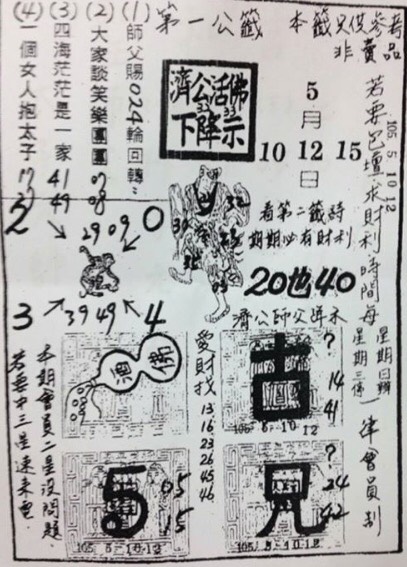 第一公籤
本籤只供參考
非賣品
(1)師父賜024輪回轉
(2)大家談笑樂團團
(3)四海茫茫是一家
(4)一個女人抱太子
07
08
41
49
17
濟公活佛
下降示
23
33
5
月
10 12 15
日
105 5 10 12
若要包壇求財利時間每
星期日辦
星期三停
一律會員制
看第二籤詩
期期必有財利
20也40
濟公師父降禾
2
0
29 09
3
39 49
4
32
愛財找
13
16
23
26
45
46
古
?
14
41
105-5-10.12
5
05
15
105. 5-10-12
兄
?
24
42
105. 5-10.12
本期會員二星沒問題
若要中三星速來電